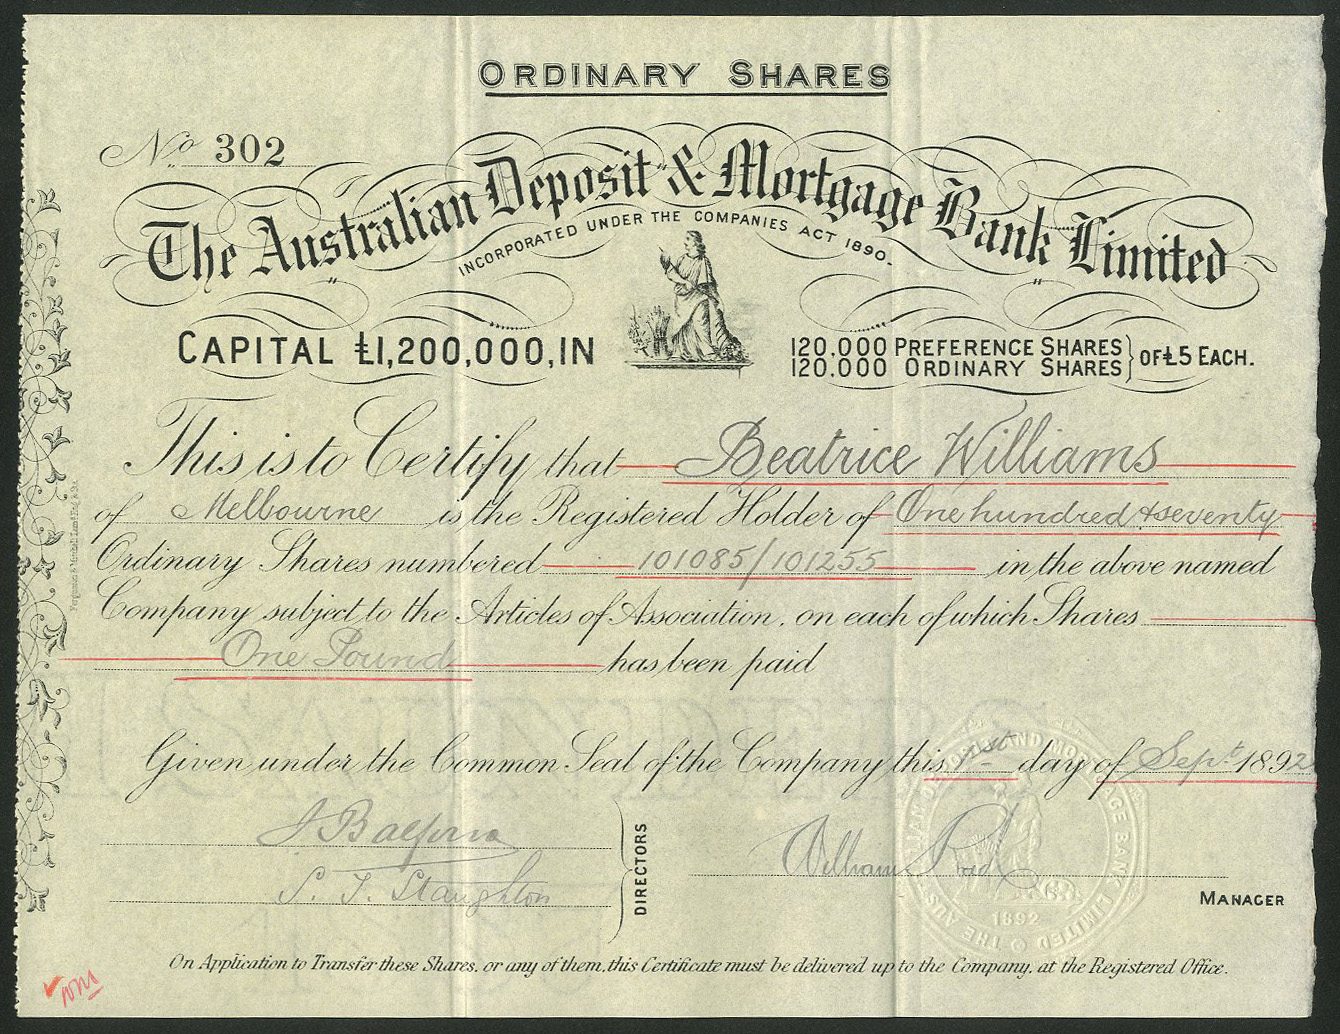 ORDINARY SHARES
No 302
The Australian Deposit & Mortgage Bank Limited
INCORPORATED UNDER THE COMPANIES ACT 1890.
CAPITAL £1,200,000, IN
120.000 PREFERENCE SHARES
120.000 ORDINARY SHARES
OF £5 EACH.
This is to Certify that Beatrice Williams
of Melbourne is the Registered Holder of One hundred & seventy
Ordinary Shares numbered 101085/101255 in the above named
Company subject to the Articles of Association, on each of which Shares
One Pound has been paid
Given under the Common Seal of the Company this 1st day of Sept. 1892
J Balfour
S. T. Staughton
DIRECTORS
William
MANAGER
THE AUSTRALIAN DEPOSIT AND MORTGAGE BANK LIMITED
1892
On Application to Transfer these Shares, or any of them, this Certificate must be delivered up to the Company, at the Registered Office.